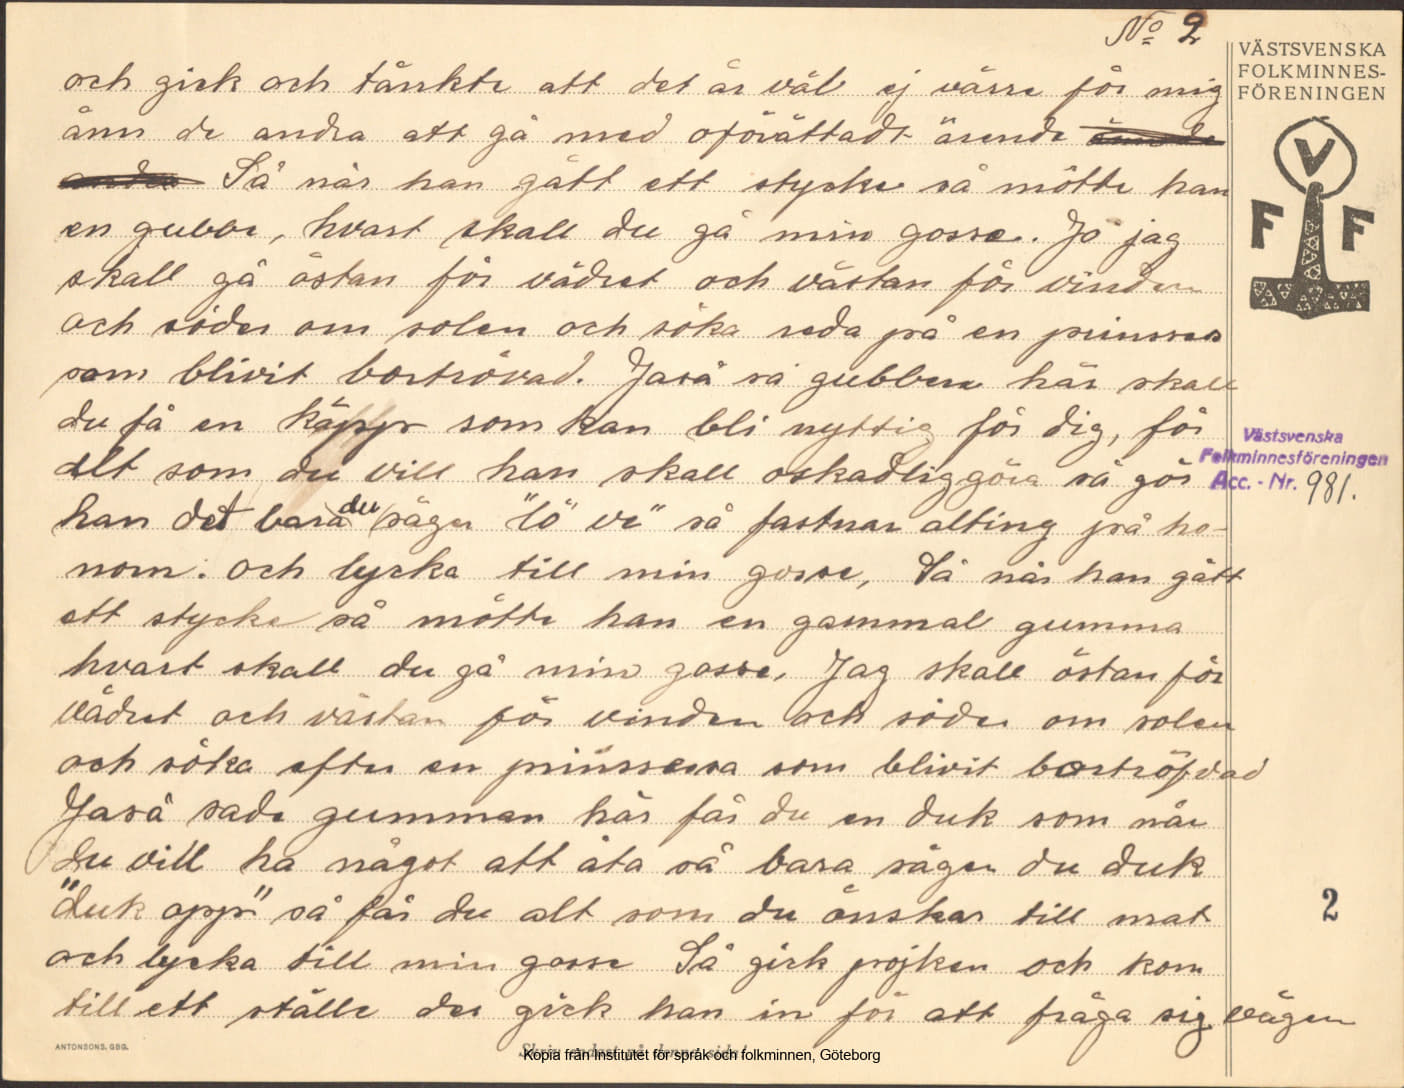 No 2
och gick och tänkte att det är väl ej värre för mig
änn de andra att gå med oförättadt ärende
Så när han gått ett stycke så mötte han
en gubbe, hvart skall du gå min gosse. Jo jag
skall gå östan för vädret och västan för vinden
och söder om solen och söka reda på en prinsess
som blivit bortrövad. Jaså sa gubben här skall
du få en käpp som kan bli nyttig för dig, för
alt som du vill han skall oskadliggöra så gör
han det bara du säger "lö ve" så fastnar alting på ho-
nom. och lycka till min gosse, Så när han gått
ett stycke så mötte han en gammal gumma
hvart skall du gå min gosse, Jag skall östan för
vädret och västan för vinden och söder om solen
och söka efter en prinssessa som blivit bortröfvad
Jaså sade gumman här får du en duk som når
du vill ha något att äta så bara säger du duk
"duk opp" så får du alt som du önskar till mat
och lycka till min gosse Så gick pojken och kom
till ett ställe der gick han in för att fråga sig vägen
VÄSTSVENSKA
FOLKMINNES-
FÖRENINGEN
V
F F
Västsvenska
Folkminnesföreningen
Acc. - Nr. 981.
2
ANTONSONS, GBG.
Skriv endast på denna sida!
Kopia från Institutet för språk och folkminnen, Göteborg